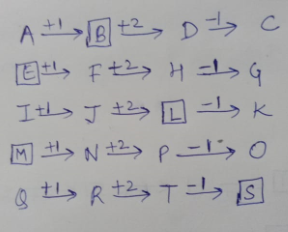 A +1→ B +2→ D -1→ C
E +1→ F +2→ H -1→ G
I +1→ J +2→ L -1→ K
M +1→ N +2→ P -1→ O
Q +1→ R +2→ T -1→ S